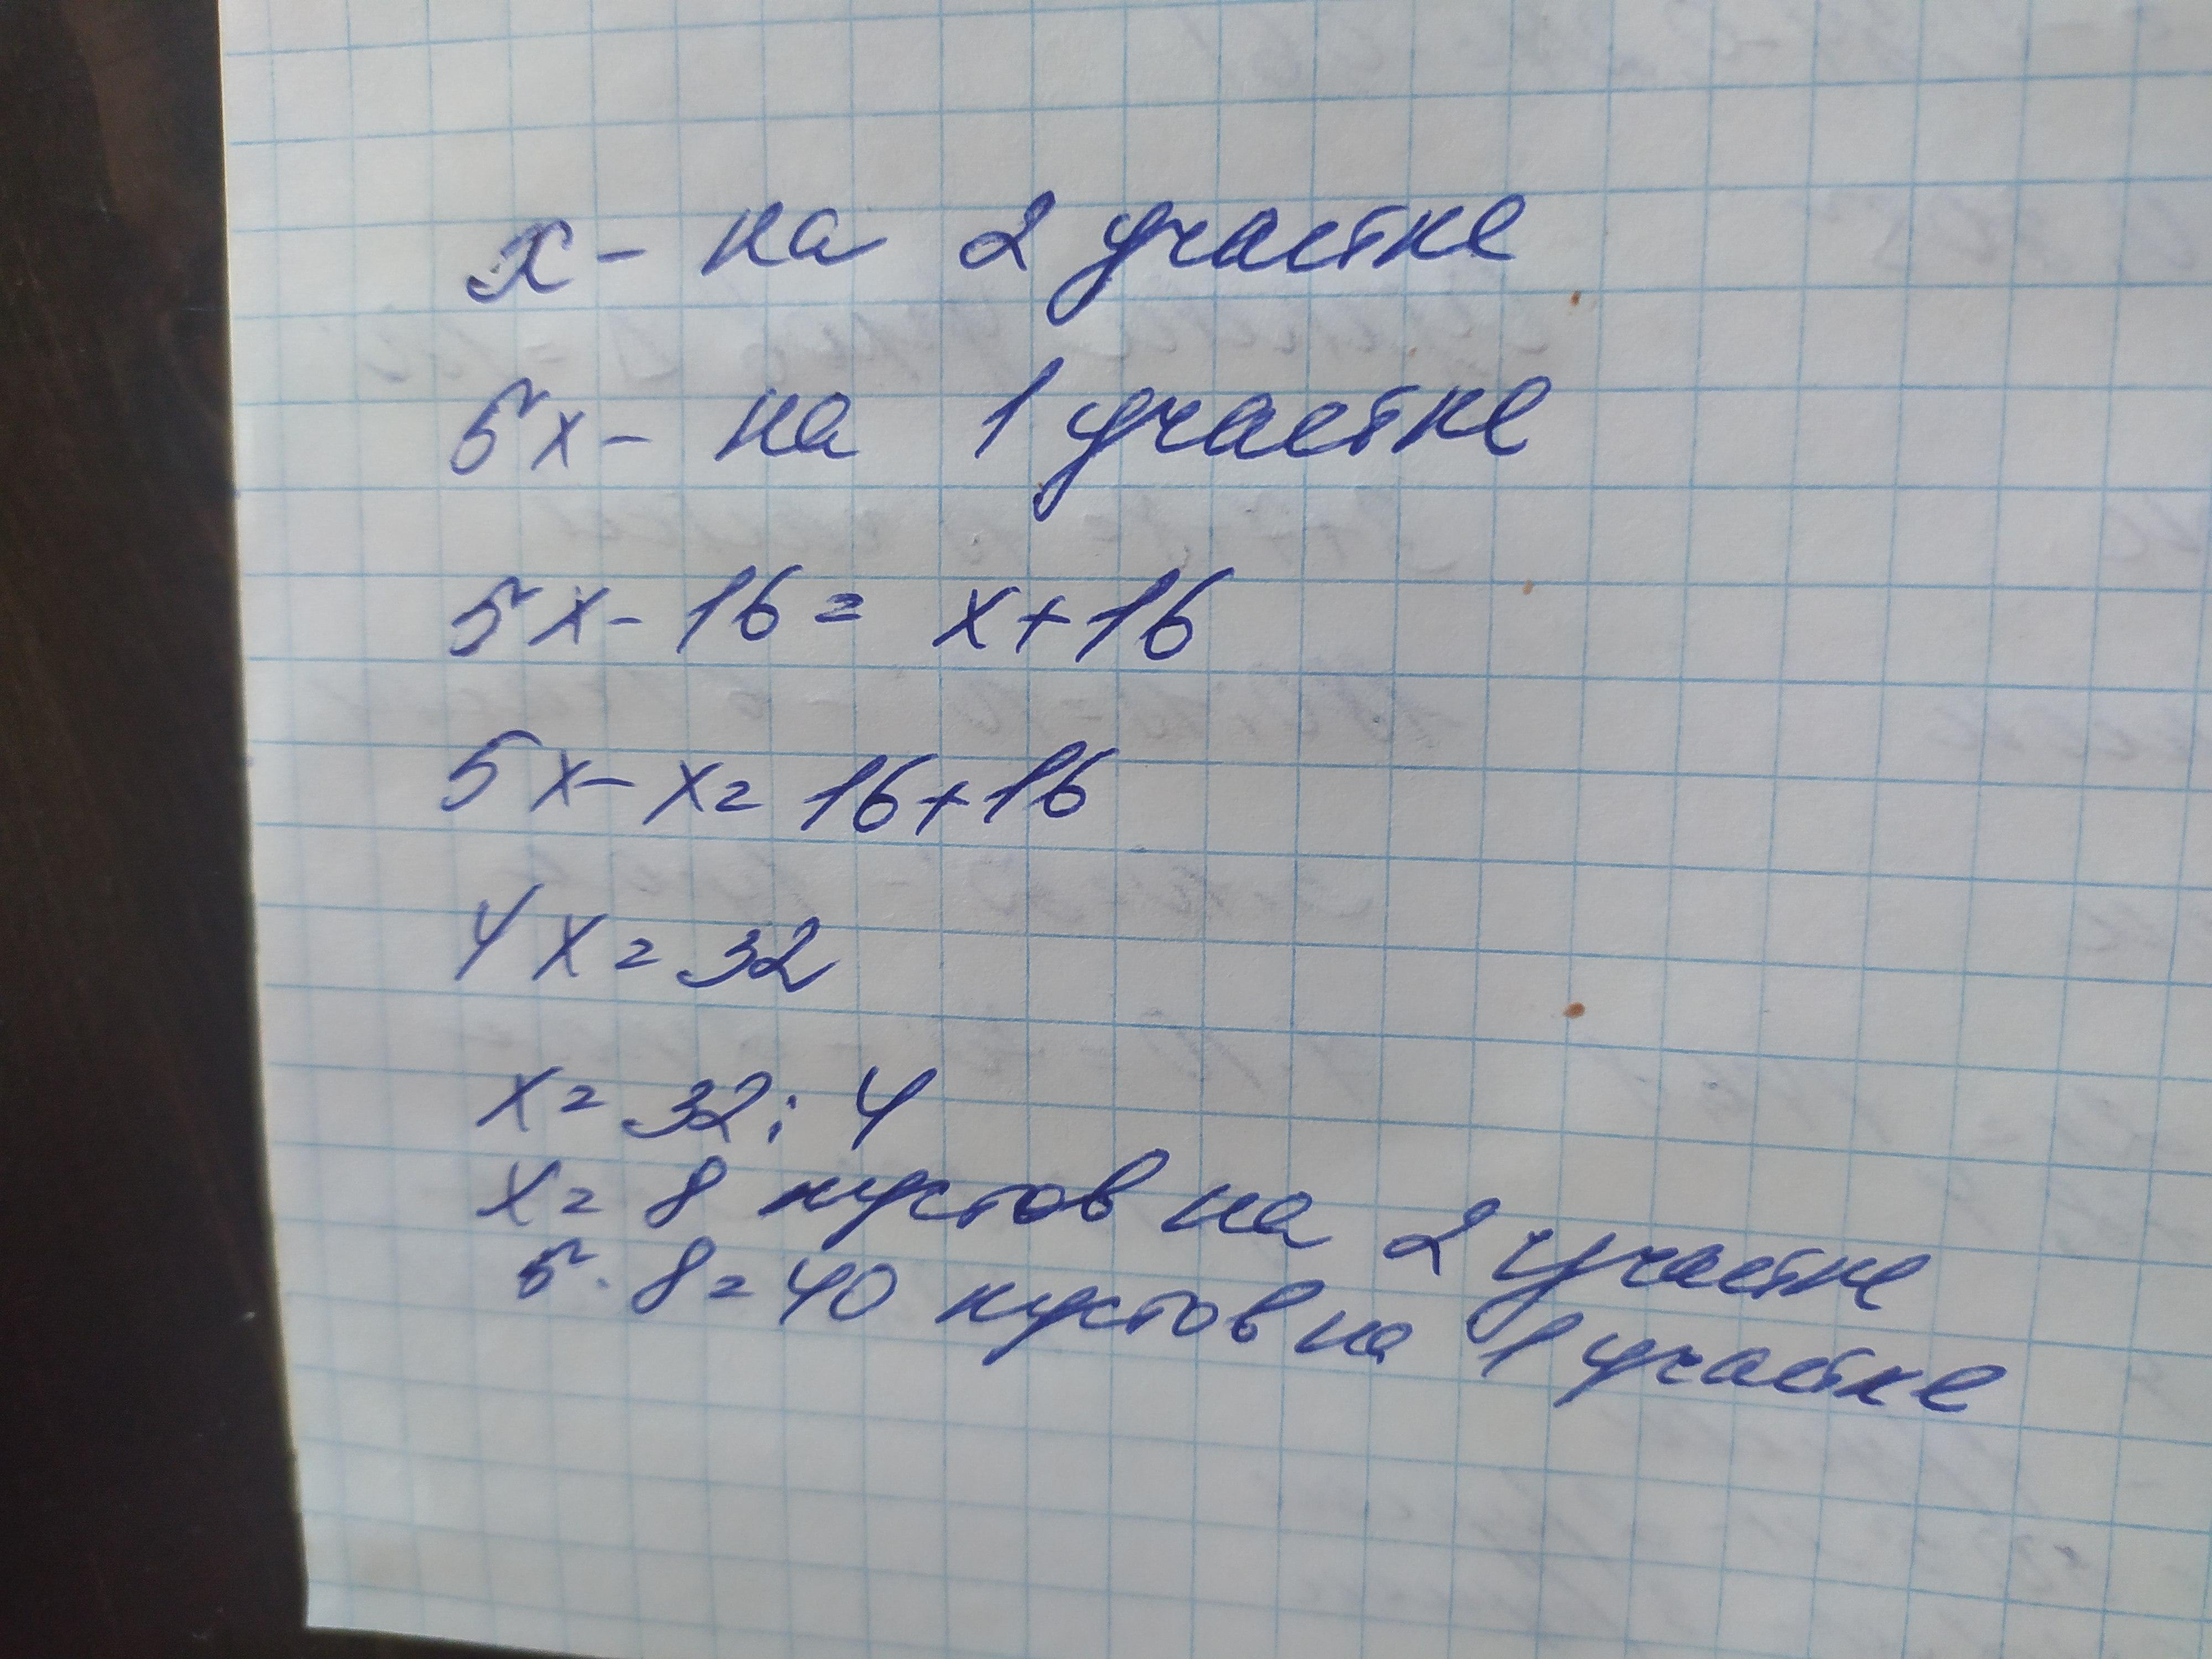 x - на 2 участке
5x - на 1 участке
5x - 16 = x + 16
5x - x = 16 + 16
4x = 32
x = 32 : 4
x = 8 кустов на 2 участке
5 · 8 = 40 кустов на 1 участке